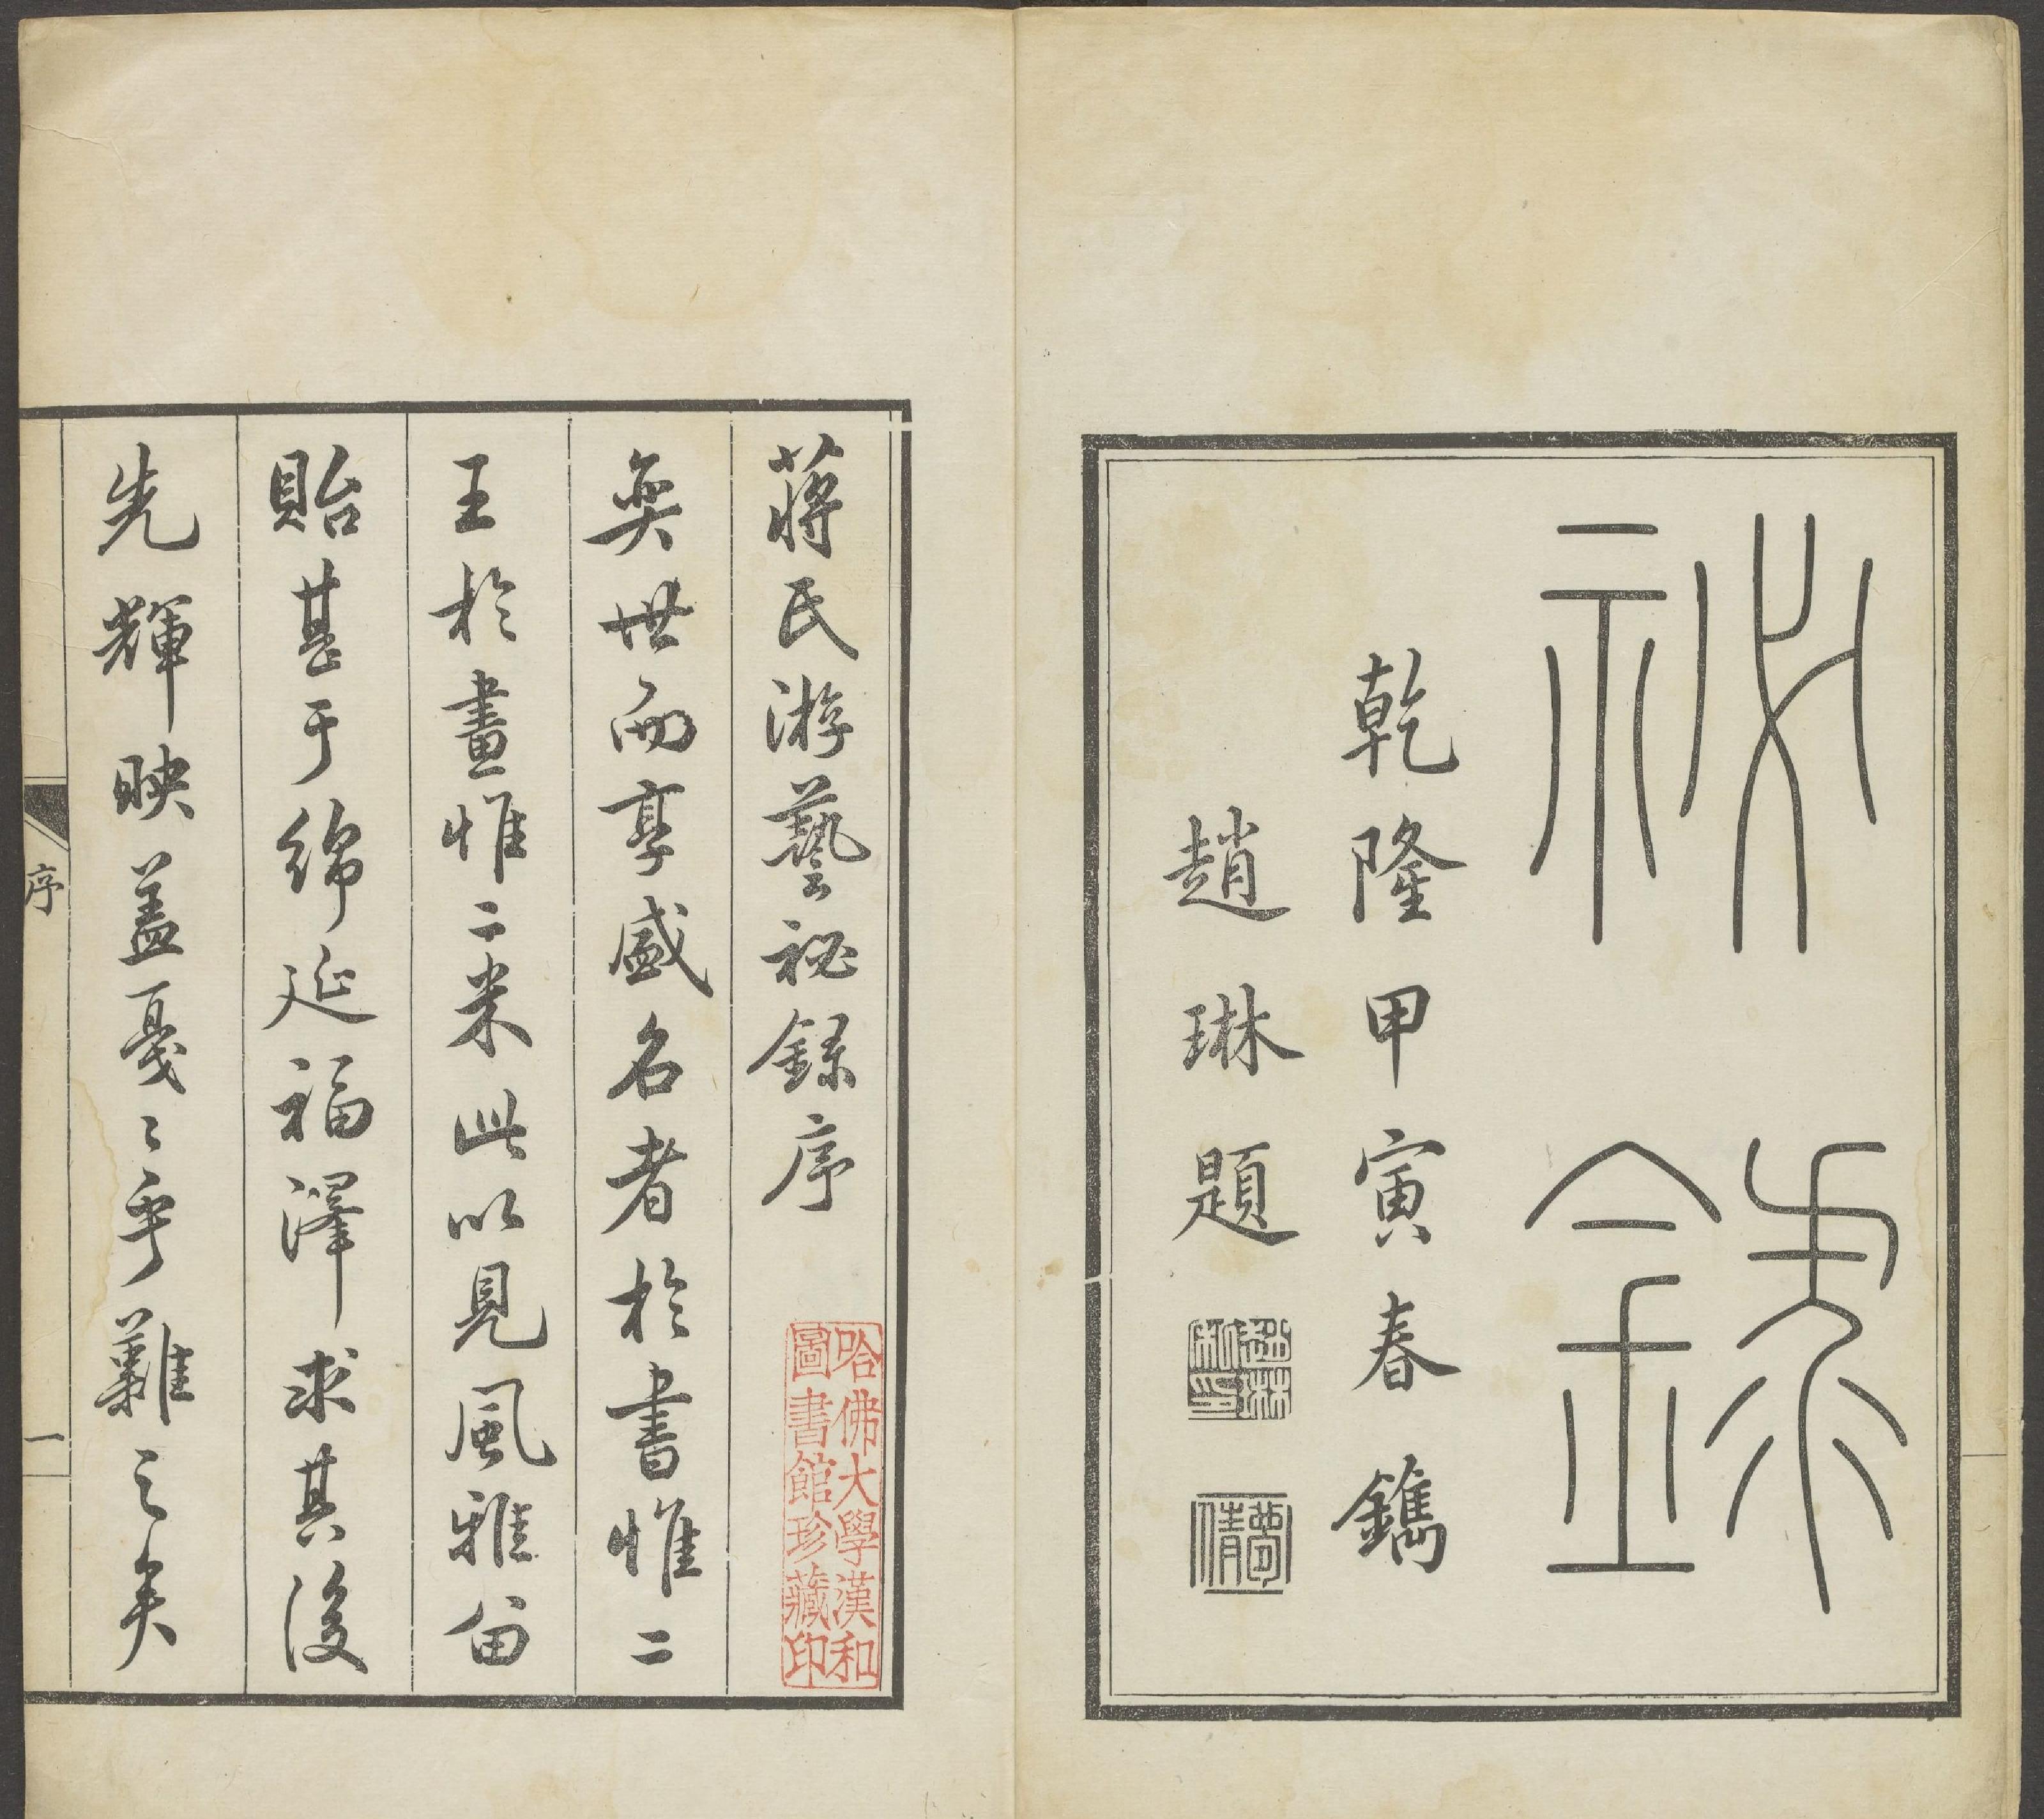 祕錄
乾隆甲寅春鐫
趙琳題
趙琳私印
蔣氏游藝祕錄序
奕世而享盛名者於書惟二
王於畫惟二米此以見風雅留
貽甚于綿延福澤求其後
先輝映蓋戞〻乎難之矣
哈佛大學漢和
圖書館珍藏印
序
一